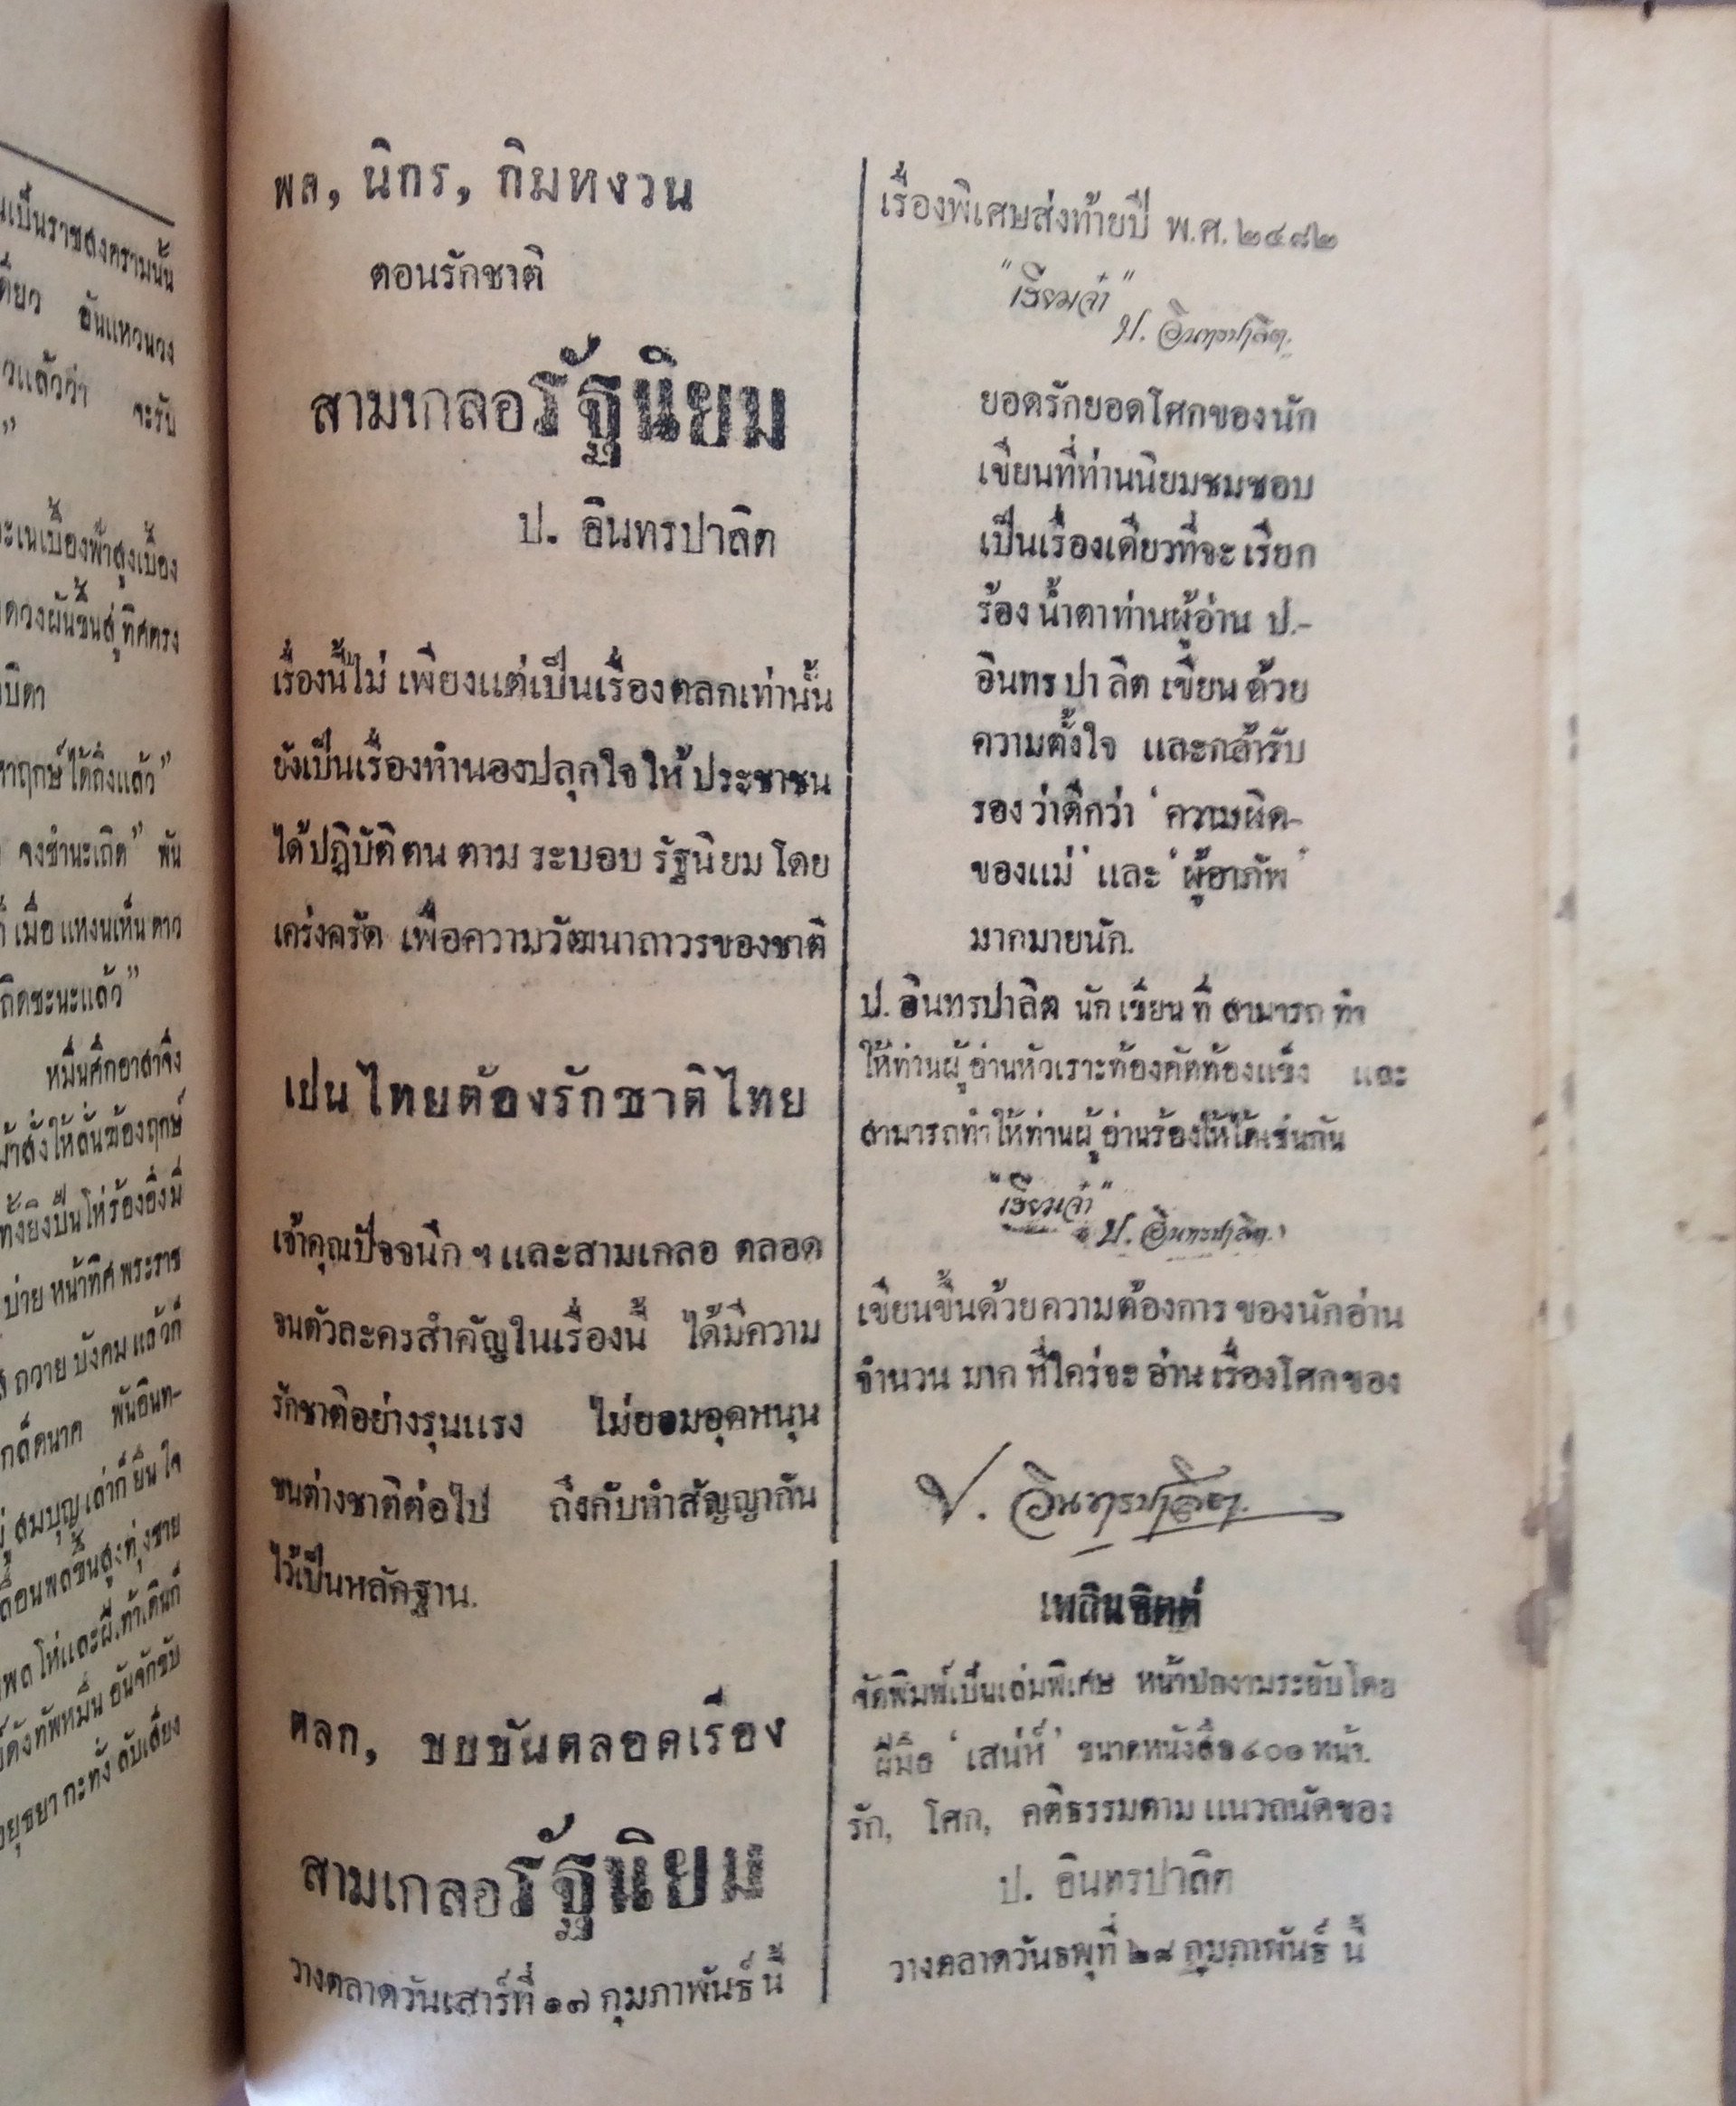 นเป็นราชสงครามนั้น
ดียว อันแหวนวง
วแล้วว่า จะรับ
”
ะเนเบื้องฟ้าสูงเบื้อง
ดวงผันขึ้นสู่ทิศตรง
บิดา
หาฤกษ์ได้ถึงแล้ว”
จงชำนะเถิด” พัน
ก็ เมื่อ แหงนเห็น ดาว
ถิดชะนะแล้ว”
หมื่นศึกอาสาจึง
ม้าสั่งให้ลั่นฆ้องฤกษ์
ทั้งยิงปืนโห่ร้องอึงมี่
บ่าย หน้าทิศ พระราช
ถวาย บังคม แล้วก็
กล็ดนาค พันอินท-
สมบุญ เล่าก็ ยินใจ
ลื่อนพลขึ้นสูงทุ่งชาย
พล โห่และผี.ท้าเดินก็
ดั้งทัพหมื่น อันจักขับ
อยุธยา กะทั่ง ลับเสียง
พล, นิกร, กิมหงวน
ตอนรักชาติ
สามเกลอรัฐนิยม
ป. อินทรปาลิต
เรื่องนี้ไม่ เพียงแต่เป็นเรื่องตลกเท่านั้น
ยังเป็นเรื่องทำนองปลุกใจให้ประชาชน
ได้ปฏิบัติตน ตาม ระบอบ รัฐนิยม โดย
เคร่งครัด เพื่อความวัฒนาถาวรของชาติ
เปนไทยต้องรักชาติไทย
เจ้าคุณปัจจนึก ฯ และสามเกลอ ตลอด
จนตัวละครสำคัญในเรื่องนี้ ได้มีความ
รักชาติอย่างรุนแรง ไม่ยอมอุดหนุน
ชนต่างชาติต่อไป ถึงกับทำสัญญากัน
ไว้เป็นหลักฐาน.
ตลก, ขบขันตลอดเรื่อง
สามเกลอรัฐนิยม
วางตลาดวันเสาร์ที่ ๑๗ กุมภาพันธ์ นี้
เรื่องพิเศษส่งท้ายปี พ.ศ. ๒๔๘๒
"เรียมจ๋า"
ป. อินทรปาลิต.
ยอดรักยอดโศกของนัก
เขียนที่ท่านนิยมชมชอบ
เป็นเรื่องเดียวที่จะ เรียก
ร้อง น้ำตาท่านผู้อ่าน ป.-
อินทรปาลิต เขียน ด้วย
ความตั้งใจ และกล้ารับ
รอง ว่าดีกว่า ‘ความผิด-
ของแม่’ และ ‘ผู้อาภัพ’
มากมายนัก.
ป. อินทรปาลิต นัก เขียน ที่ สามารถ ทำ
ให้ท่านผู้อ่านหัวเราะท้องคัดท้องแข็ง และ
สามารถทำให้ท่านผู้อ่านร้องให้ได้เช่นกัน
"เรียมจ๋า"
ป. อินทรปาลิต.
เขียนขึ้นด้วยความต้องการ ของนักอ่าน
จำนวน มาก ที่ใคร่จะ อ่าน เรื่องโศกของ
ป. อินทรปาลิต.
เพลินจิตต์
จัดพิมพ์เป็นเล่มพิเศษ หน้าปกงามระยับโดย
ฝีมือ ‘เสน่ห์’ ขนาดหนังสือ ๔๐๑ หน้า.
รัก, โศก, คติธรรมตาม แนวถนัดของ
ป. อินทรปาลิต
วางตลาดวันธพุที่ ๒๘ กุมภาพันธ์ นี้